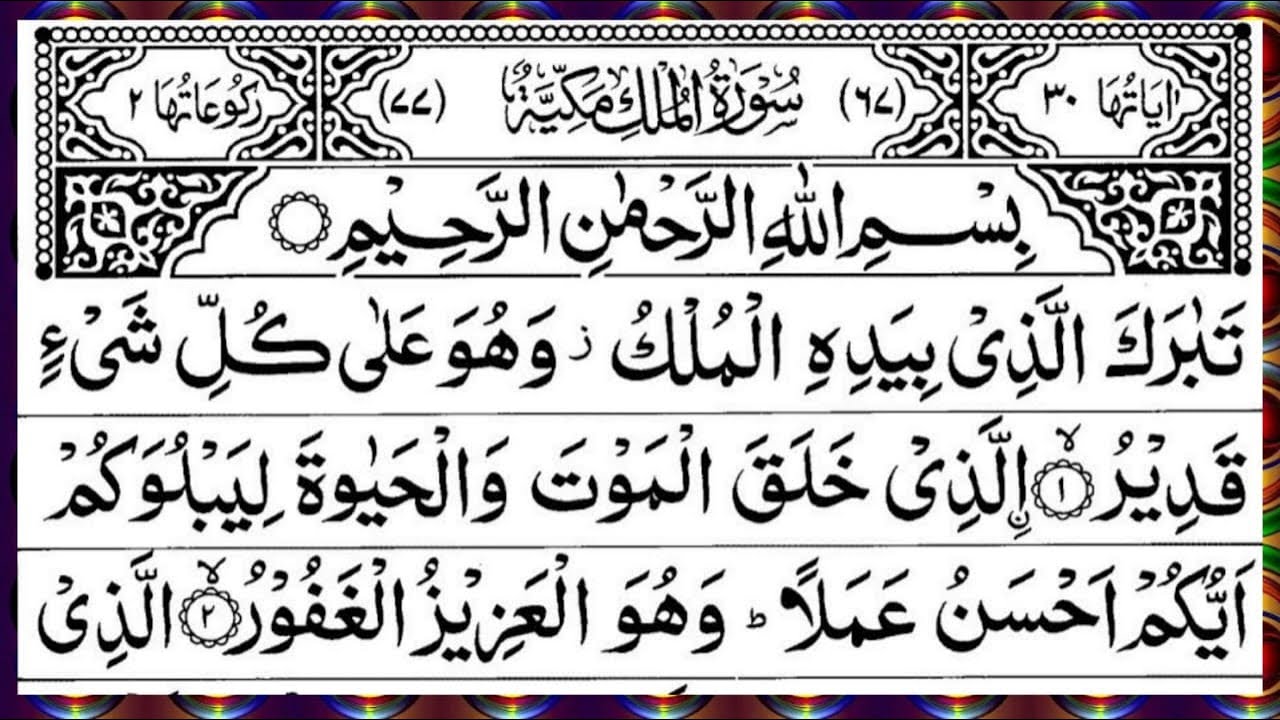 اٰيَاتُهَا ٣٠ (٦٧) سُوْرَةُ الْمُلْكِ مَكِّيَّةٌ (٧٧) رُكُوْعَاتُهَا ٢
بِسْمِ اللّٰهِ الرَّحْمٰنِ الرَّحِيْمِ
تَبٰرَكَ الَّذِيْ بِيَدِهِ الْمُلْكُ ز وَهُوَ عَلٰى كُلِّ شَيْءٍ
قَدِيْرُ ۙ﴿١﴾ اۨلَّذِيْ خَلَقَ الْمَوْتَ وَالْحَيٰوةَ لِيَبْلُوَكُمْ
اَيُّكُمْ اَحْسَنُ عَمَلًا ؕ وَهُوَ الْعَزِيْزُ الْغَفُوْرُ ۙ﴿٢﴾ الَّذِيْ